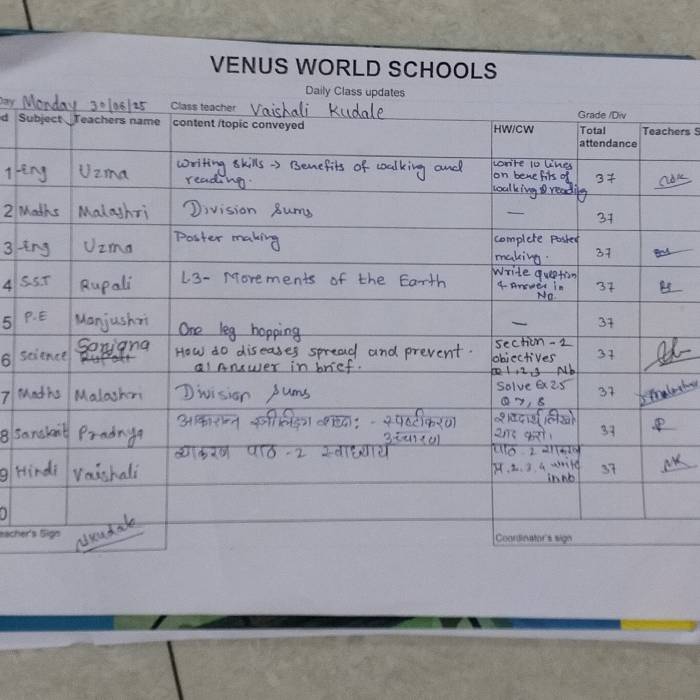 VENUS WORLD SCHOOLS
Daily Class updates
Day Monday 30/06/25 Class teacher Vaishali Kudale Grade /Div
d Subject Teachers name content /topic conveyed HW/CW Total attendance Teachers S
1 Eng Uzma Writing skills → Benefits of walking and reading. write 10 lines on benefits of walking & reading 37
2 Maths Malashri Division Sums — 37
3 Eng Uzma Poster making complete Poster making. 37
4 S.S.T Rupali L3- Movements of the Earth Write question & Answer in Nb. 37
5 P.E Manjushri One leg hopping — 37
6 Science Sanjana How do diseases spread and prevent. Q1 Answer in brief. section-2 objectives Q1,2,3 Nb 37
7 Maths Malashri Division Sums Solve Ex 25 Q 7, 8 37
8 Sanskrit Pradnya आकारान्त स्त्रीलिङ्ग शब्दाः - स्पष्टीकरण उच्चारण शब्दार्थ लिखो याद करो। 37
9 Hindi Vaishali व्याकरण पाठ - 2 स्वाध्याय पाठ - 2 व्याकरण प्र. 2, 3, 4 write in nb 37
0
eacher's Sign Coordinator's sign